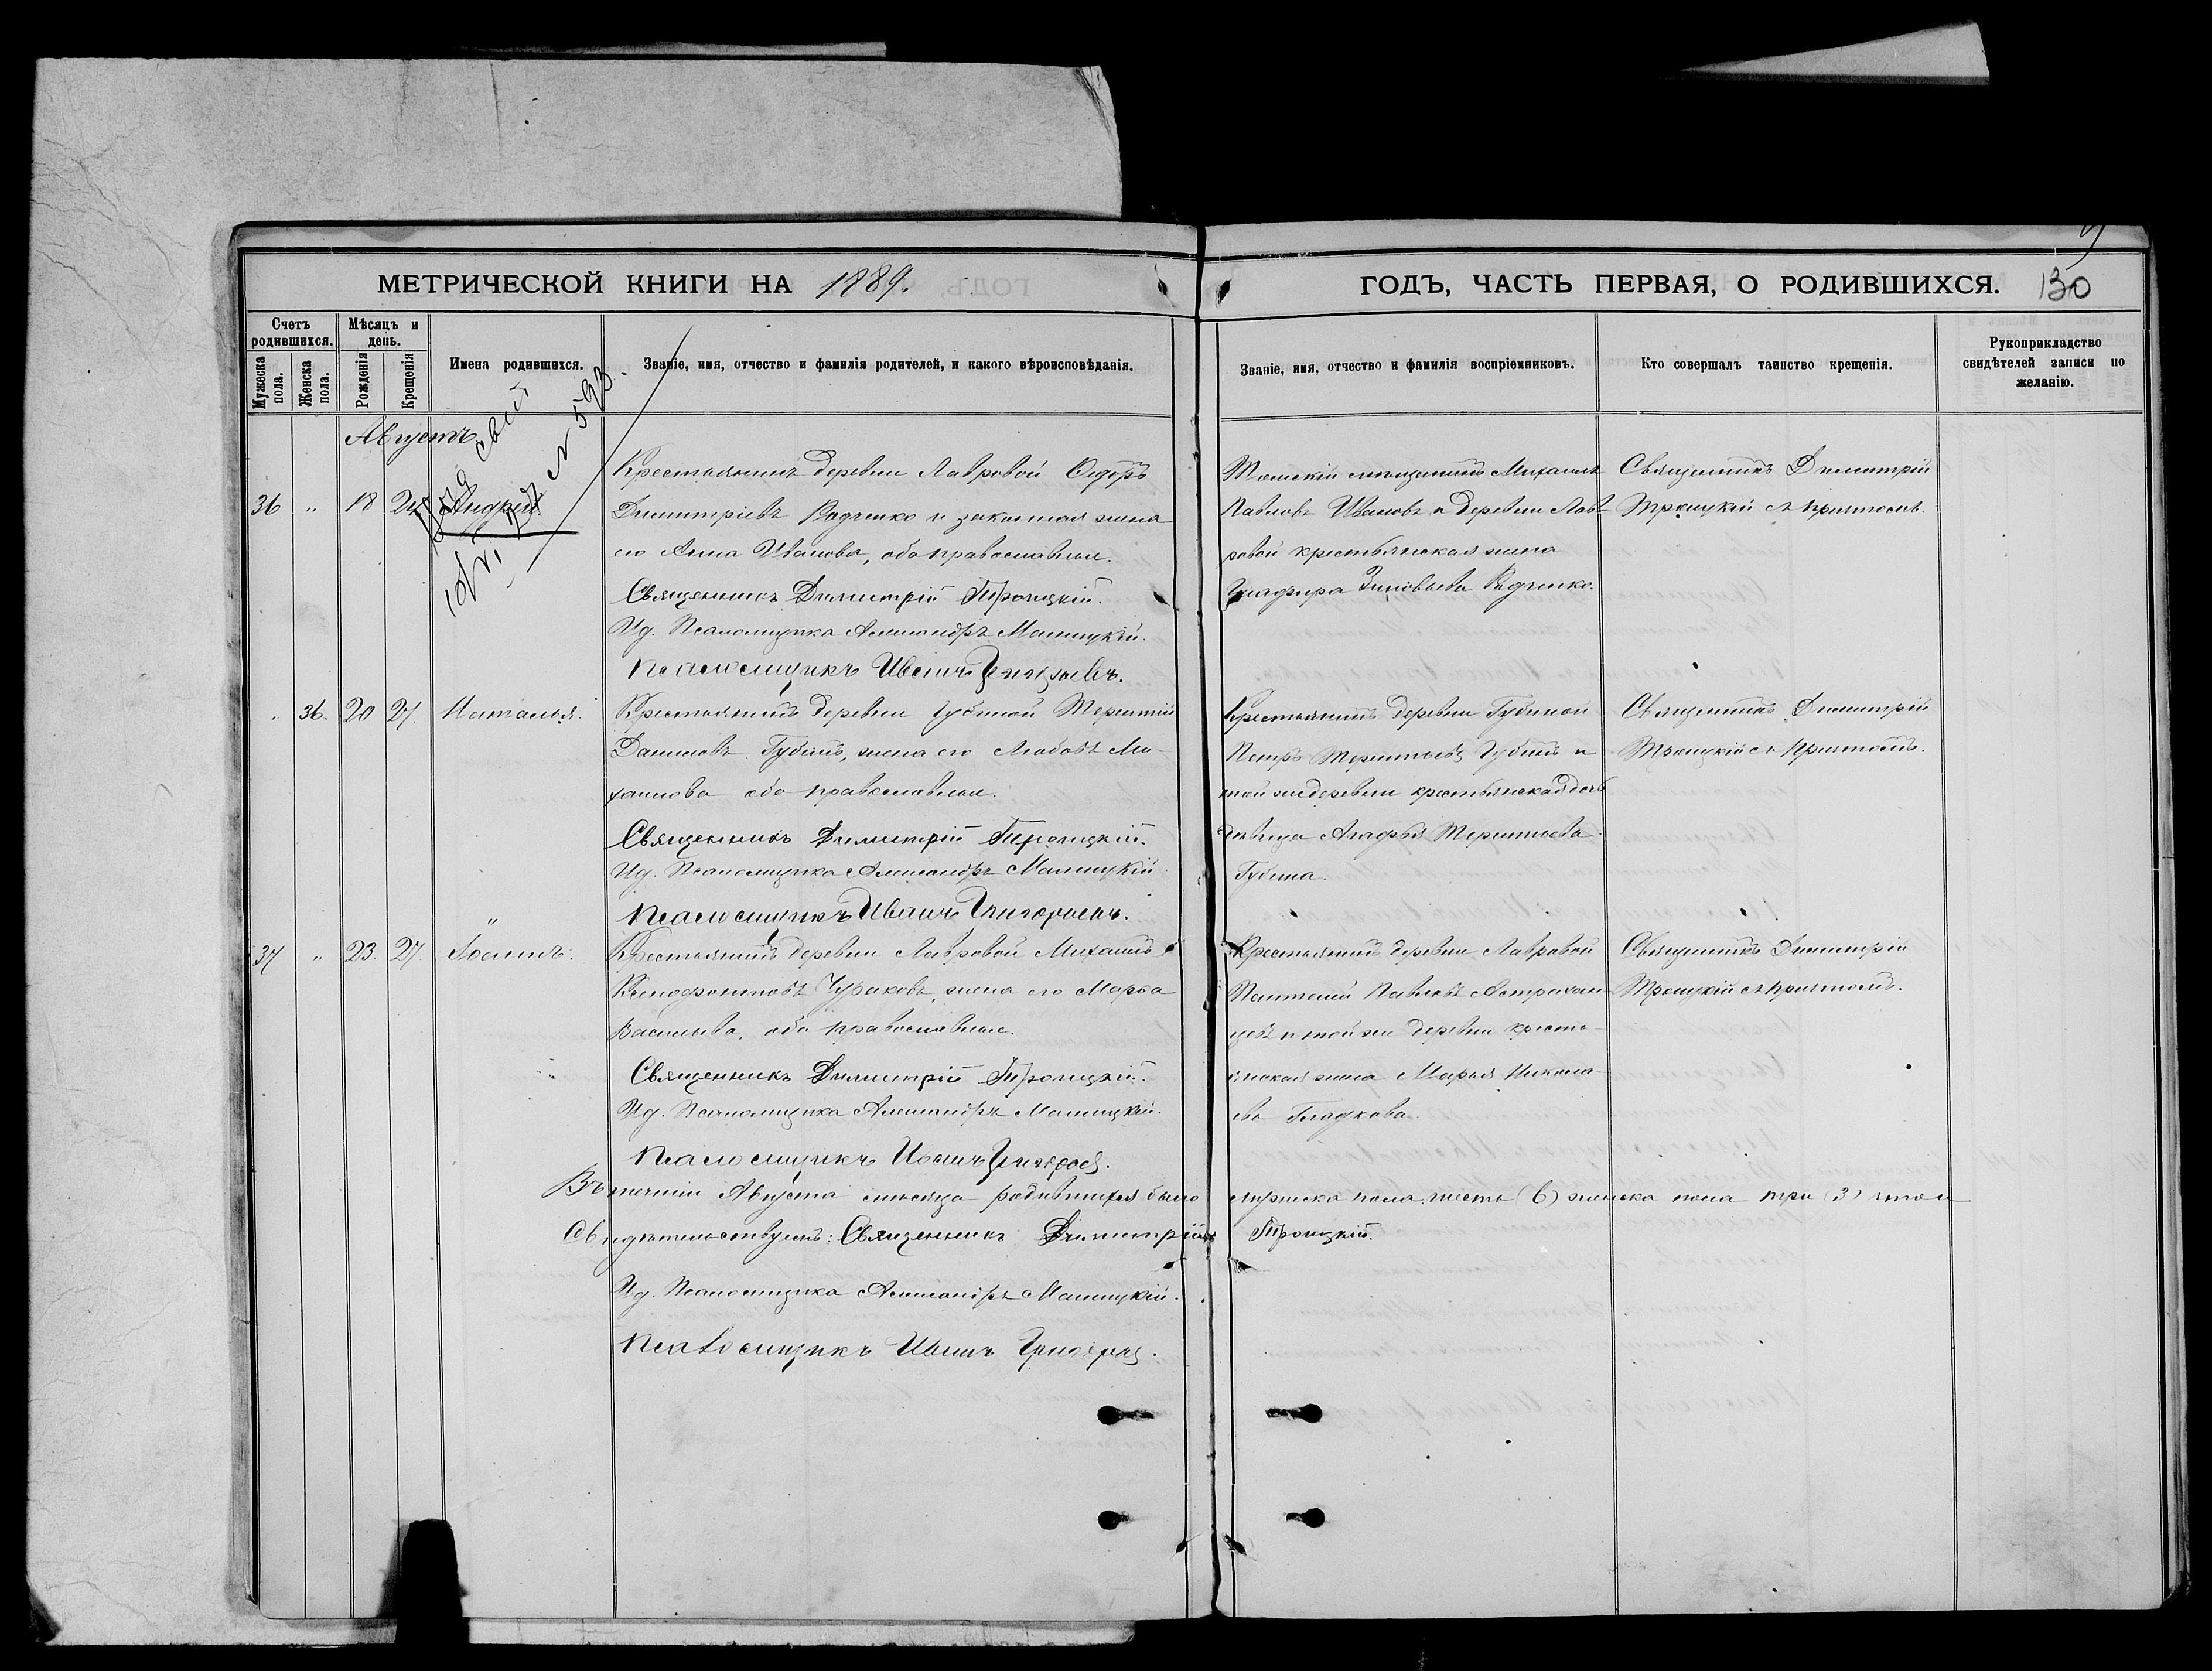 МЕТРИЧЕСКОЙ КНИГИ НА 1889.
ГОДЪ, ЧАСТЬ ПЕРВАЯ, О РОДИВШИХСЯ. 130
Счетъ родившихся.
Мужеска пола.
Женска пола.
Мѣсяцъ и день.
Рожденія
Крещенія
Имена родившихся.
Званіе, имя, отчество и фамилія родителей, и какого вѣроисповѣданія.
Званіе, имя, отчество и фамилія воспріемниковъ.
Кто совершалъ таинство крещенія.
Рукоприкладство свидѣтелей записи по желанію.
Августъ
36 " 18 24 Андрей
№ 590.
Крестьянинъ деревни Лавровой Ѳедоръ
Димитріевъ Радченко и законная жена
его Анна Иванова, оба православные.
Священникъ Димитрій Троицкій.
Ид. Псаломщика Александръ Малицкій.
Псаломщикъ Иванъ Григорьевъ.
Томскій мѣщанинъ Михаилъ
Павловъ Ивановъ и деревни Лав-
ровой крестьянская жена
Глафира Зиновьева Радченко.
Священникъ Димитрій
Троицкій съ причтомъ.
" 36. 20 27. Наталья.
Крестьянинъ деревни Губиной Терентій
Даниловъ Губинъ, жена его Любовь Ми-
хаилова оба православные.
Священникъ Димитрій Троицкій.
Ид. Псаломщика Александръ Малицкій.
Псаломщикъ Иванъ Григорьевъ.
Крестьянинъ деревни Губиной
Петръ Терентьевъ Губинъ и
той же деревни крестьянская дочь
дѣвица Агафья Терентьева
Губина.
Священникъ Димитрій
Троицкій съ причтомъ.
37 " 23. 27. Іоаннъ.
Крестьянинъ деревни Лавровой Михаилъ
Ксенофонтовъ Чураковъ, жена его Марѳа
Васильева, оба православные.
Священникъ Димитрій Троицкій.
Ид. Псаломщика Александръ Малицкій.
Псаломщикъ Иванъ
Крестьянинъ деревни Лавровой
Пантелей Павловъ Астрахан-
цевъ и той же деревни кресть-
янская жена Марья Никола-
ева Гладкова.
Священникъ Димитрій
Троицкій съ причтомъ.
Въ теченіи Августа мѣсяца родившихся было мужеска пола шесть (6) женска пола три (3) въ чемъ и
свидѣтельствуемъ: Священникъ Димитрій Троицкій.
Ид. Псаломщика Александръ Малицкій.
Псаломщикъ Иванъ